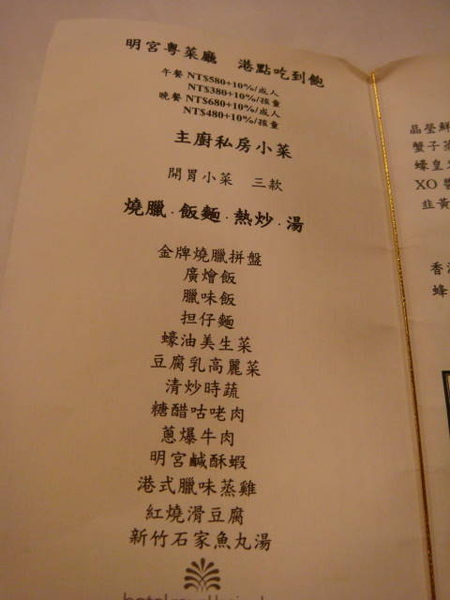 明宮粵菜廳　港點吃到飽
午餐 NT$580+10%/成人
NT$380+10%/孩童
晚餐 NT$680+10%/成人
NT$480+10%/孩童
主廚私房小菜
開胃小菜　三款
燒臘．飯麵．熱炒．湯
金牌燒臘拼盤
廣燴飯
臘味飯
担仔麵
蠔油美生菜
豆腐乳高麗菜
清炒時蔬
糖醋咕咾肉
蔥爆牛肉
明宮鹹酥蝦
港式臘味蒸雞
紅燒滑豆腐
新竹石家魚丸湯
晶瑩鮮
蟹子蒸
蠔皇
XO 醬
韭黃
香港
蜂